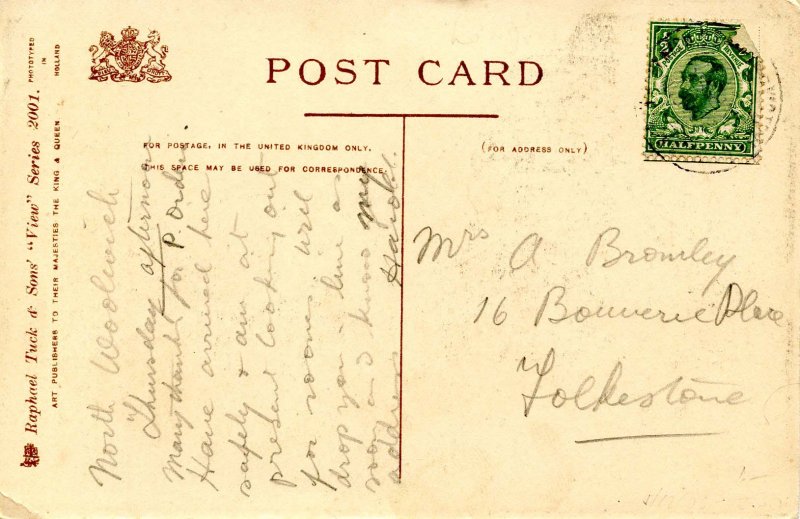 POST CARD
FOR POSTAGE, IN THE UNITED KINGDOM ONLY.
THIS SPACE MAY BE USED FOR CORRESPONDENCE.
(FOR ADDRESS ONLY)
HALFPENNY
Raphael Tuck & Sons' "View" Series 2001.
PHOTOTYPED
IN
HOLLAND
ART PUBLISHERS TO THEIR MAJESTIES THE KING & QUEEN
North Woolwich
Thursday afternoon
Many thanks for P. Order
Have arrived here
safely & am at
present looking out
for rooms will
drop you a line as
soon and know my
address
Harold.
Mrs A Bromley
16 Bouverie Place
Folkestone